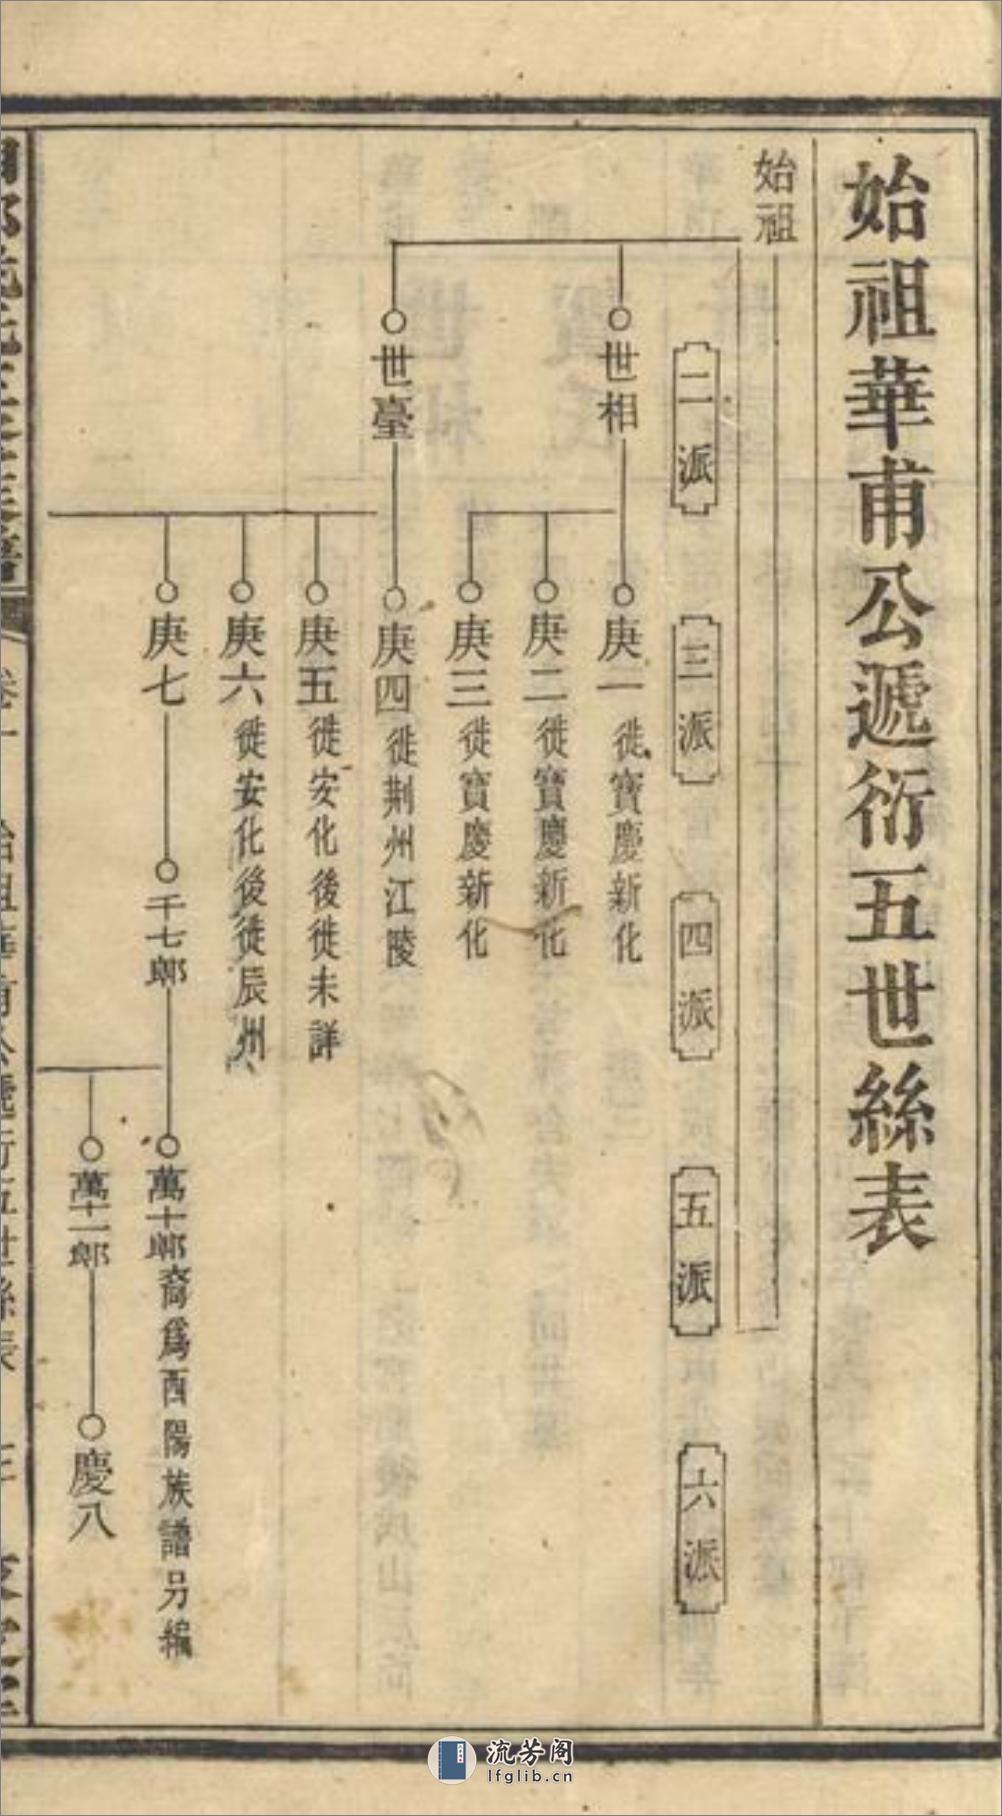 始祖華甫公遞衍五世絲表
始祖
二派
三派
四派
五派
六派
世相
庚一徙寶慶新化
庚二徙寶慶新化
庚三徙寶慶新化
世臺
庚四徙荆州江陵
庚五徙安化後徙未詳
庚六徙安化後徙辰州
庚七
千七郎
萬十郎裔爲酉陽族譜另編
萬十一郎
慶八
始祖華甫公遞衍五世絲表
流芳阁
lfglib.cn